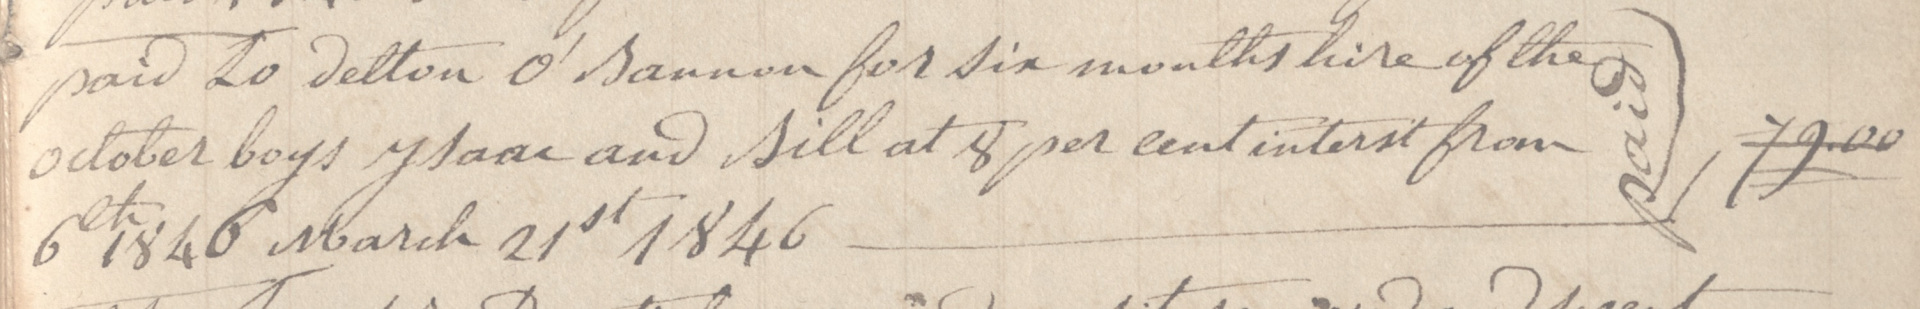 paid To delton O'Bannon for six months hire of the
october boys ysaac and Bill at 8 per cent interst from
6th 1846 March 21st 1846
paid
79.00